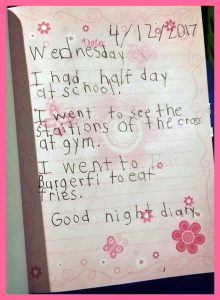 4/12/2017
Wednesday
I had half day
at school.
I went to see the
staitions of the cross
at gym.
I went to
Burgerfi to eat
fries.
Good night diary.